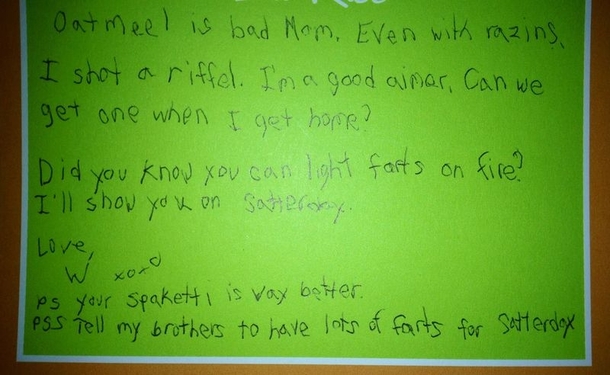 Oatmeel is bad Mom. Even with razins.
I shot a riffel. I'm a good aimer. Can we
get one when I get home?
Did you know you can light farts on fire?
I'll show you on Satterday.
Love,
W xoxo
ps your spaketti is way better.
pss Tell my brothers to have lots of farts for Satterday